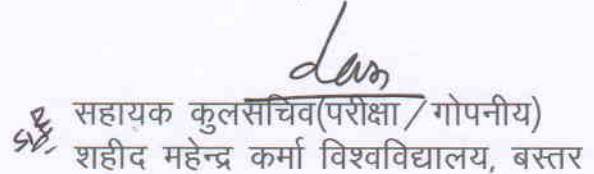 सहायक कुलसचिव(परीक्षा/गोपनीय)
शहीद महेन्द्र कर्मा विश्वविद्यालय, बस्तर